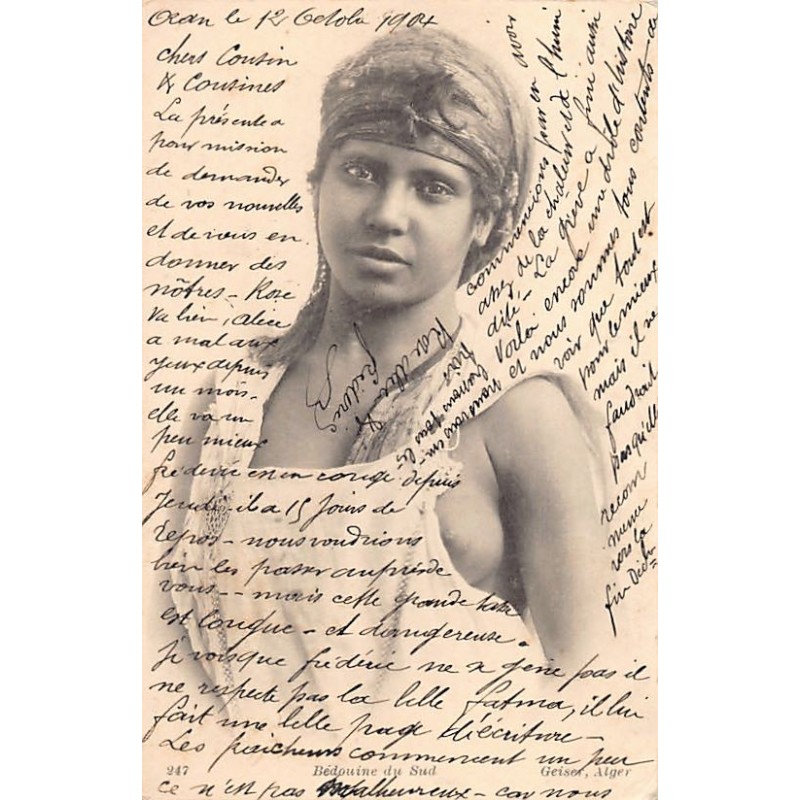 Oran le 12 Octobre 1904
chers Cousin
& Cousines
La présente a
pour mission
de demander
de vos nouvelles
et de vous en
donner des
nôtres - Rose
va bien, Alice
a mal aux
yeux depuis
un mois -
elle va un
peu mieux
frédéric est en congé depuis
Jeudi - il a 15 jours de
repos - nous voudrions
bien les passer auprès de
vous - - mais cette grande
est longue - et dangereuse.
Je vois que frédéric ne se gêne pas il
ne respecte pas la belle fatma, il lui
fait une belle page d'écriture -
Les fraicheurs commencent un peu
ce n'est pas malheureux - car nous
commencions par en avoir
assez de la chaleur et de l'humi
dité - La fièvre a fini aussi
Voilà encore un drôle d'histoire
et nous sommes tous contents de
voir que tout est
pour le mieux
mais il ne
faudrait
pas qu'elle
recom
mence
vers la
fin
frédéric
247
Bédouine du Sud
Geiser, Alger